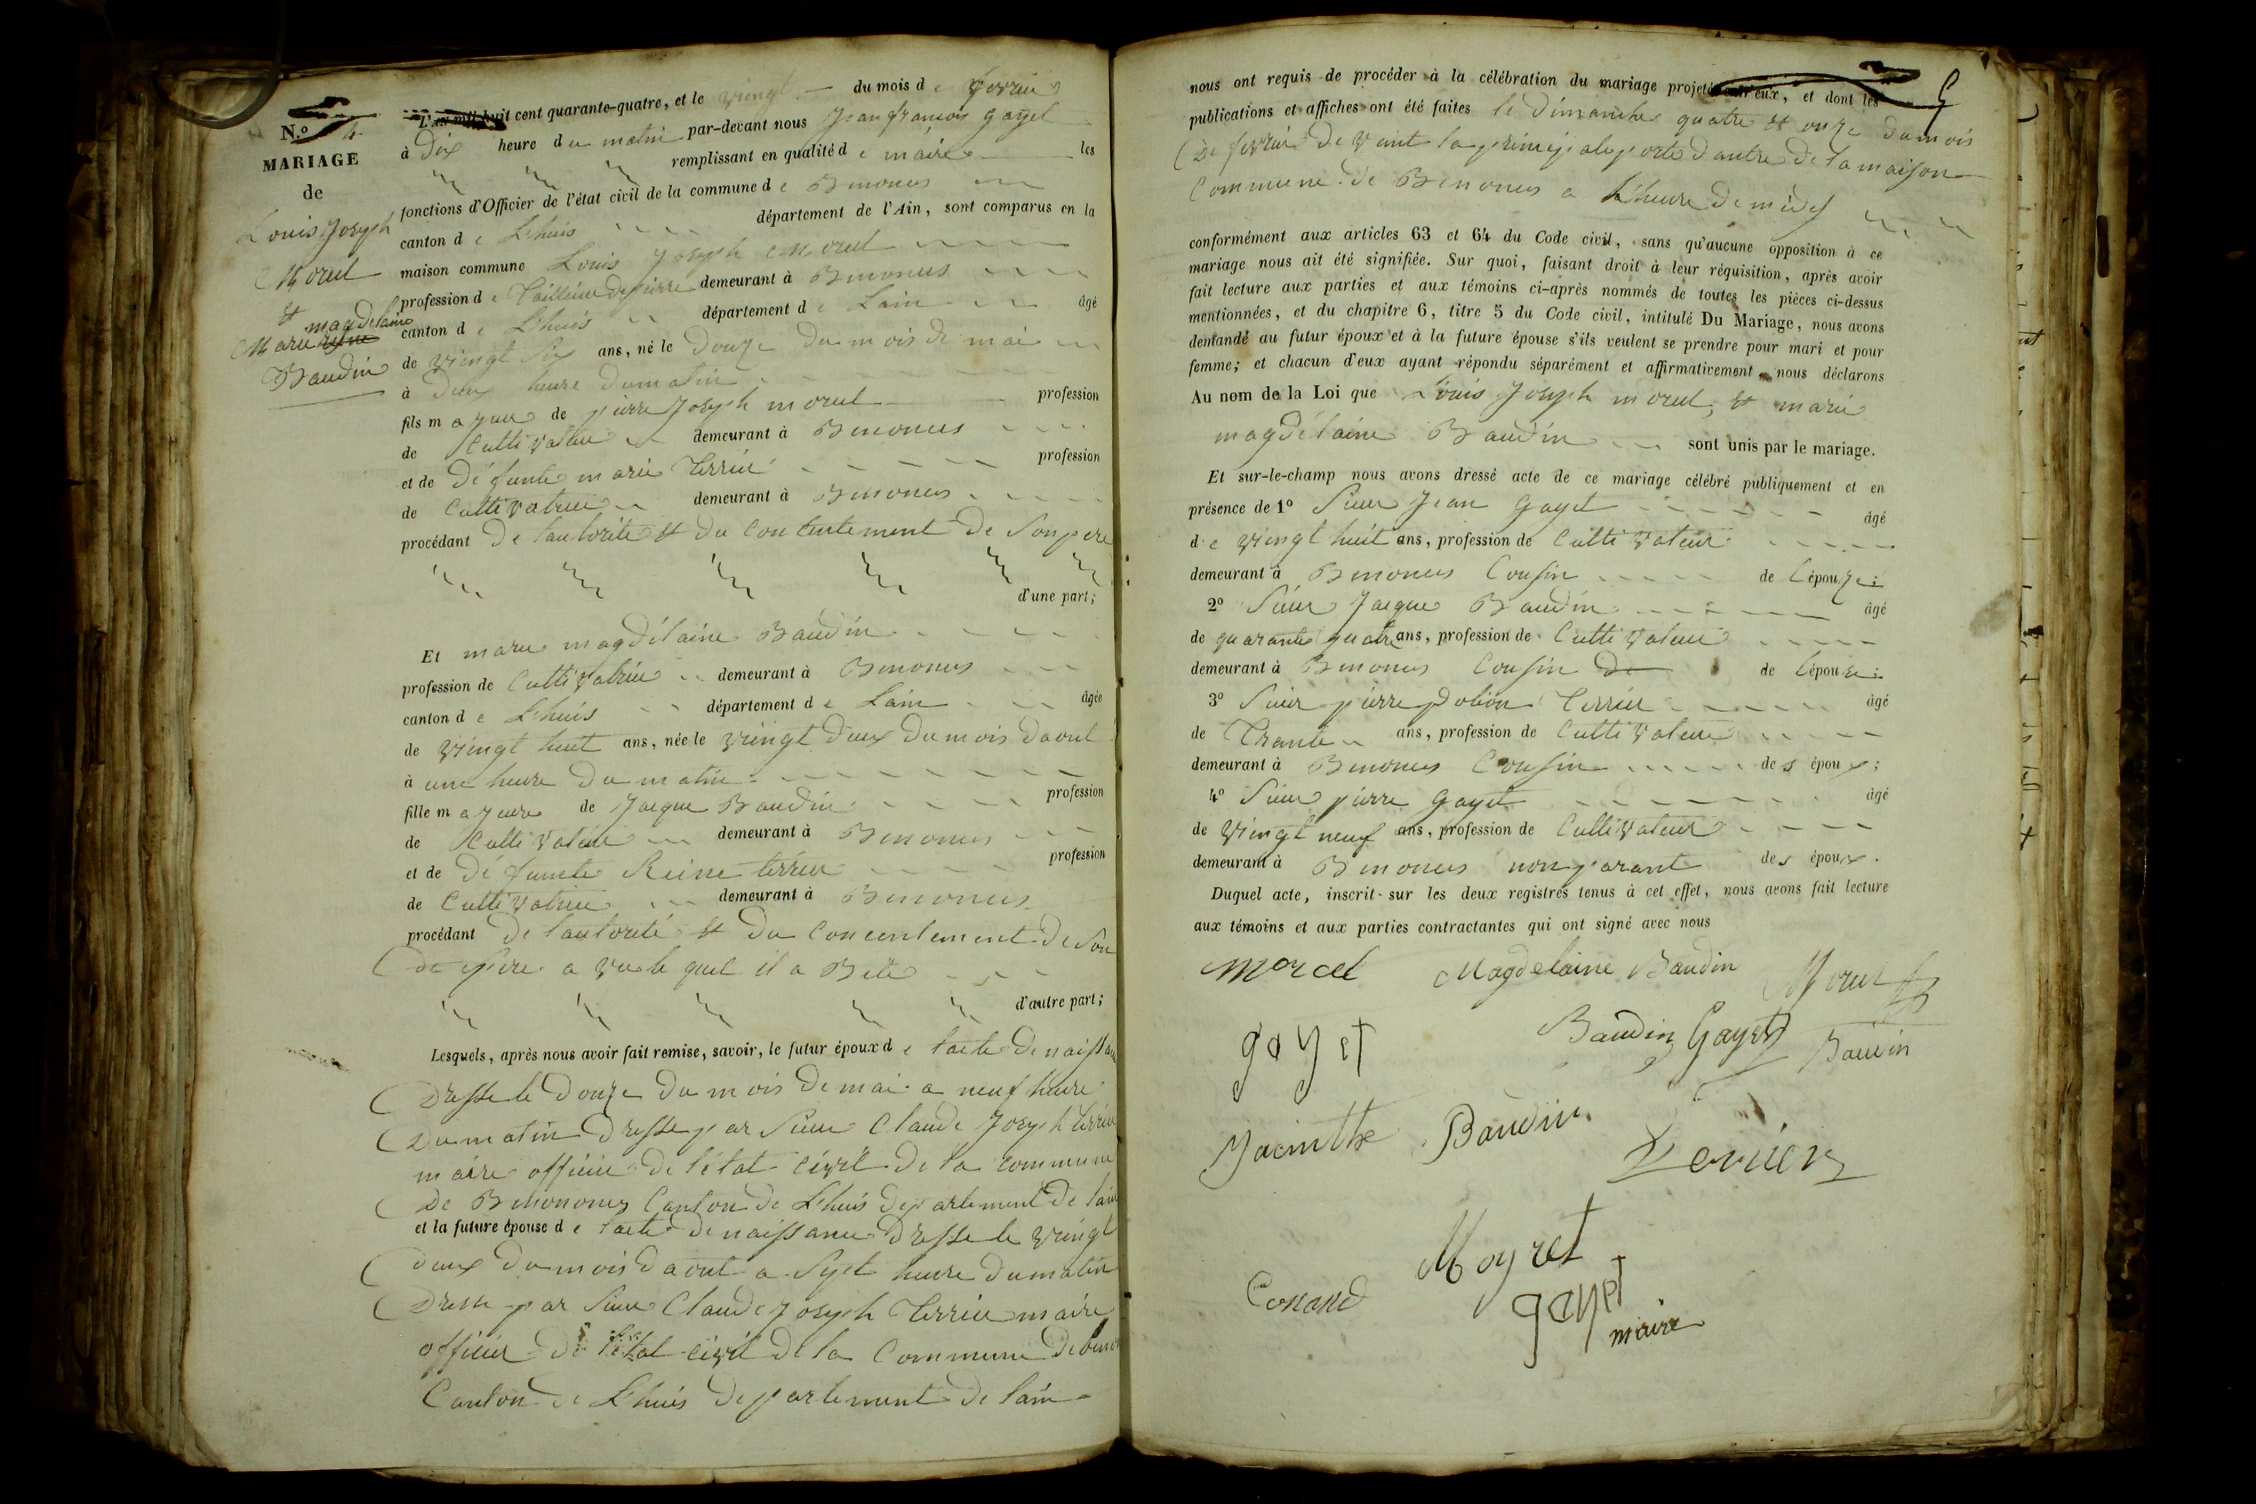 N.o 4
MARIAGE
de
Louis Joseph
Morel
et magdelaine
Marie reine
Baudin
L'an mil huit cent quarante-quatre, et le vingt du mois de fevrier
à dix heure du matin par-devant nous Jean francois gayet
remplissant en qualité de maire les
fonctions d'Officier de l'état civil de la commune de Benonces
canton de Lhuis département de l'Ain, sont comparus en la
maison commune Louis Joseph Morel
profession de Tailleur de pierre demeurant à Benonces
canton de Lhuis département de Lain âgé
de vingt six ans, né le douze du mois de mai
à deux heure du matin
fils majeur de pierre Joseph morel profession
de Cultivateur demeurant à Benonces
et de défunte marie terrier profession
de Cultivatrice demeurant à Benonces
procédant de lautorité et du consentement de son pere
d'une part;
Et marie magdelaine Baudin
profession de Cultivatrice demeurant à Benonces
canton de Lhuis département de Lain âgée
de vingt huit ans, née le vingt deux du mois daout
à une heure du matin
fille majeure de Jacque Baudin profession
de Cultivateur demeurant à Benonces
et de défunte Reine terrier profession
de Cultivatrice demeurant à Benonces
procédant de lautorité et du concentement de son
père
d'autre part;
Lesquels, après nous avoir fait remise, savoir, le futur époux de lacte de naissance
dresse le douze du mois de mai a neuf heure
du matin dresse par sieur Claude Joseph terrier
maire officier de létat civil de la commune
de Benonces Canton de Lhuis departement de lain
et la future épouse de lacte de naissance dresse le vingt
deux du mois daout a sept heure du matin
dresse par sieur Claude Joseph terrier maire
officier de létat civil de la commune de
Canton de Lhuis departement de lain
nous ont requis de procéder à la célébration du mariage projeté entr'eux, et dont les
publications et affiches ont été faites le dimanche quatre et onze du mois
de fevrier devant la principale porte dantré de la maison
Commune de Benonces a lheure de midy
conformément aux articles 63 et 64 du Code civil, sans qu'aucune opposition à ce
mariage nous ait été signifiée. Sur quoi, faisant droit à leur réquisition, après avoir
fait lecture aux parties et aux témoins ci-après nommés de toutes les pièces ci-dessus
mentionnées, et du chapitre 6, titre 5 du Code civil, intitulé Du Mariage, nous avons
demandé au futur époux et à la future épouse s'ils veulent se prendre pour mari et pour
femme; et chacun d'eux ayant répondu séparément et affirmativement nous déclarons
Au nom de la Loi que Louis Joseph morel, et marie
magdelaine Baudin sont unis par le mariage.
Et sur-le-champ nous avons dressé acte de ce mariage célébré publiquement et en
présence de 1o Sieur Jean Gayet âgé
de vingt huit ans, profession de Cultivateur
demeurant à Benonces Cousin de l'épouze;
2o Sieur Jacque Baudin âgé
de quarante quatre ans, profession de Cultivateur
demeurant à Benonces Cousin de de lépouze;
3o Sieur pierre terrier âgé
de Trante ans, profession de Cultivateur
demeurant à Benonces Cousin des époux;
4o Sieur pierre Gayet âgé
de vingt neuf ans, profession de Cultivateur
demeurant à Benonces non parant des époux.
Duquel acte, inscrit sur les deux registres tenus à cet effet, nous avons fait lecture
aux témoins et aux parties contractantes qui ont signé avec nous
morel Magdelaine Baudin Morel
gayet Baudin Gayet Baudin
Jacinthe Baudin
Terrier
Moyret
Conand gayet
maire